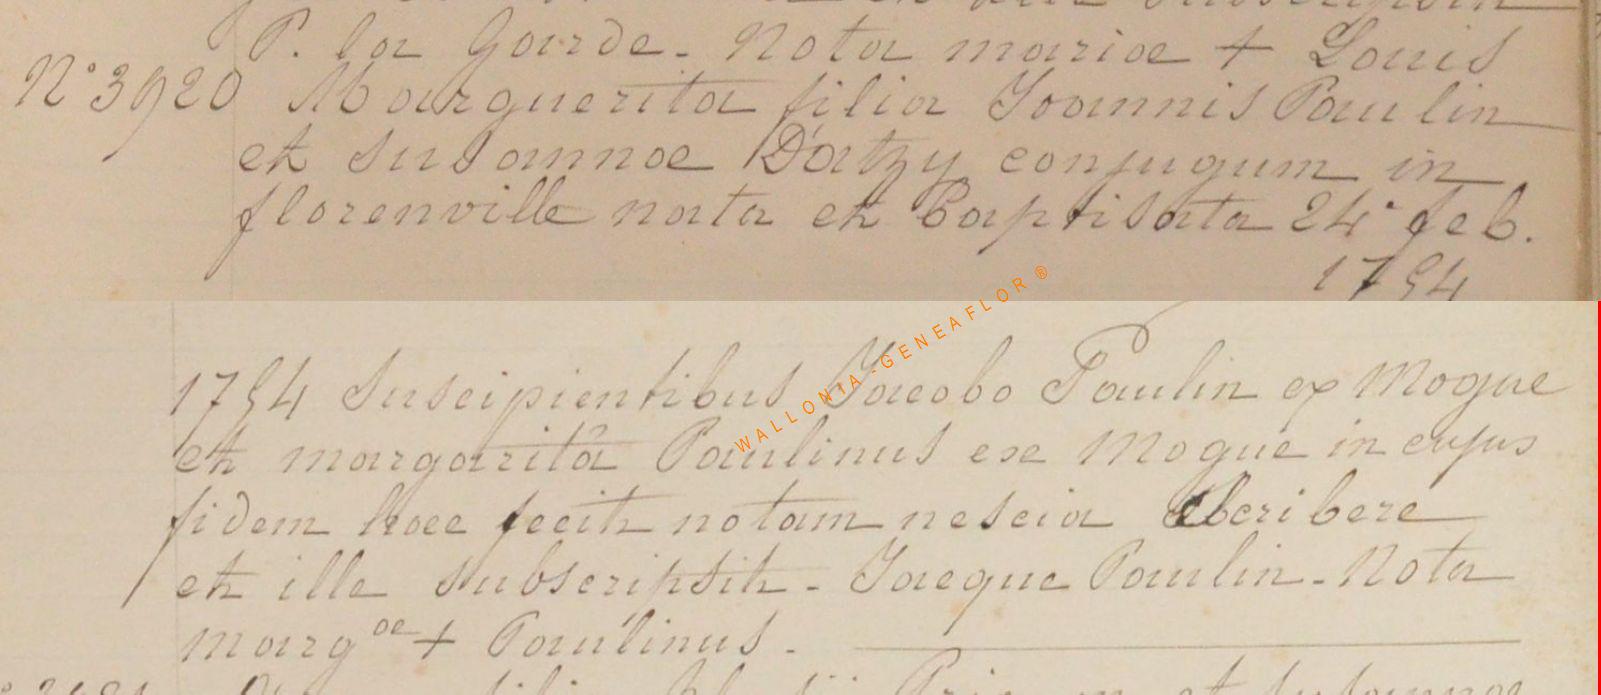 P. la Garde - Nota mariae + Louis
N° 3920 Marguerita filia Joannis Paulin
et Susannae D'atzy conjugum in
florenville nata et baptisata 24° feb.
1754
WALLONIA - GENEAFLOR ®
1754 Suscipientibus Jacobo Paulin ex Mogue
et margarita Paulinus ex Mogue in cujus
fidem haec fecit notam nescia scribere
et ille subscripsit - Jacque Paulin - Nota
marg ae + Paulinus -